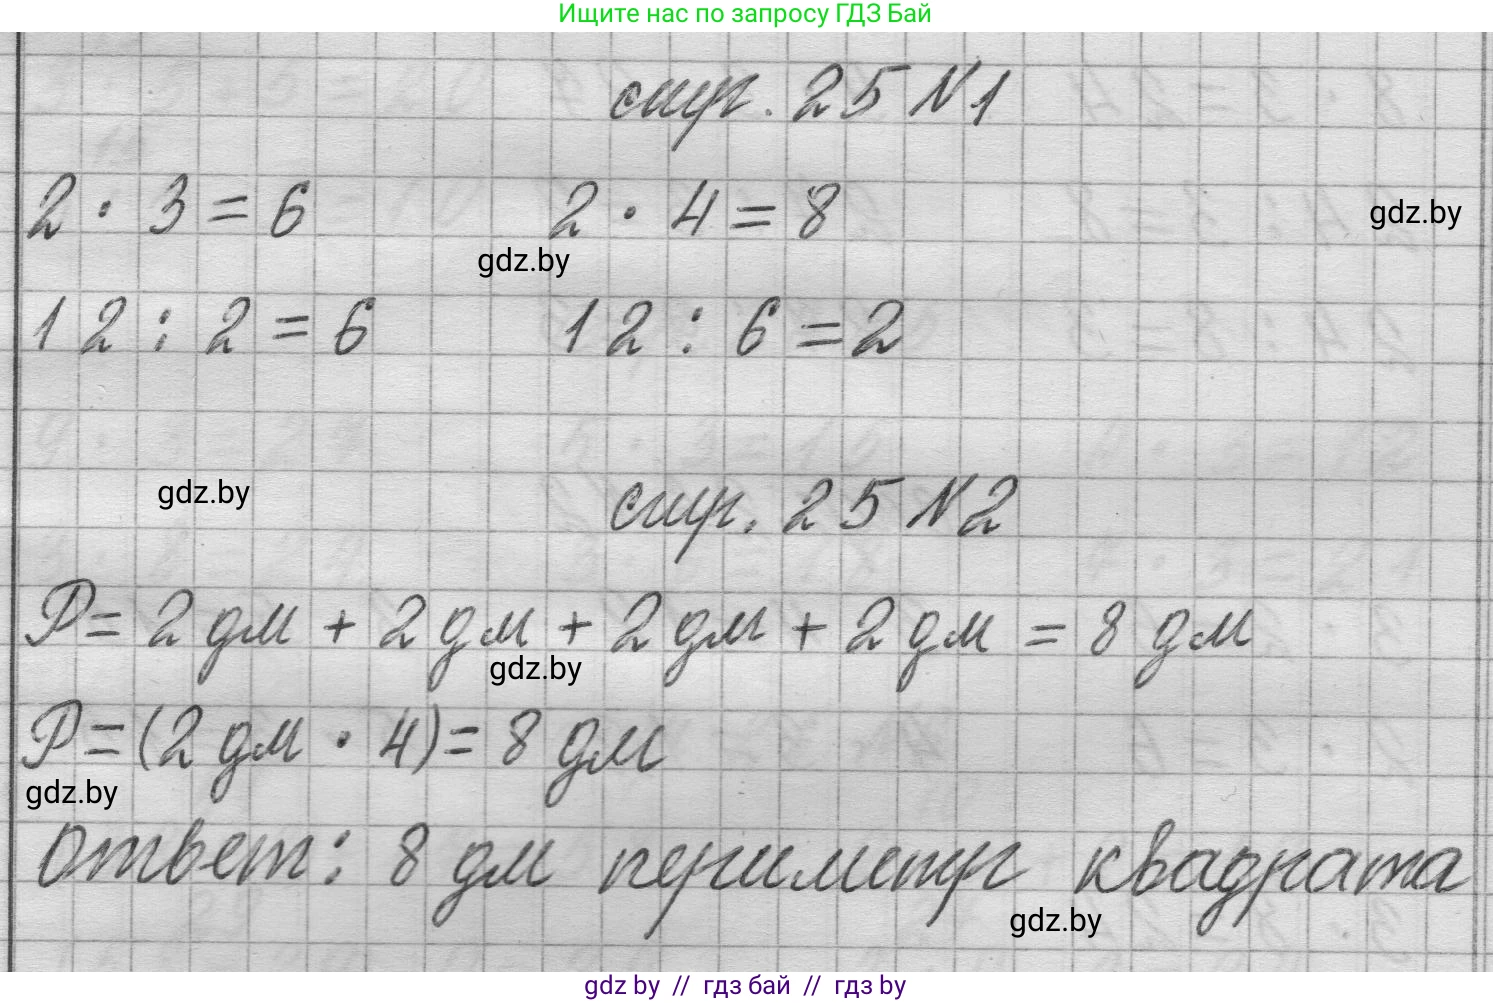 Ищите нас по запросу ГДЗ Бай
стр. 25 №1
2 · 3 = 6 2 · 4 = 8
gdz.by
gdz.by
12 : 2 = 6 12 : 6 = 2
gdz.by
стр. 25 №2
P= 2 дм + 2 дм + 2 дм + 2 дм = 8 дм
gdz.by
P=(2 дм · 4)= 8 дм
gdz.by
ответ: 8 дм периметр квадрата
gdz.by
gdz by // гдз бай // гдз by